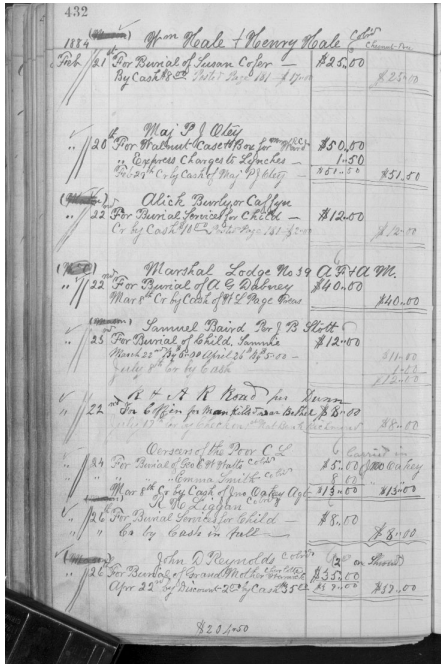 432
1884 Wm Hale & Henry Hale Cold
Feb 21st For Burial of Susan Cofer — $25.00
By Cash $8.00 Page 181 $17.00 $25.00
Maj P J Otey
" 20th For Walnut Casket Box for Ward $50.00
" Express Charges to Lynches — 1.50
Feb 25th Cr by Cash of Maj P J Otey — $51.50 $51.50
Alick Burly or Caffye
" 22nd For Burial Services for Child — $12.00
Cr by Cash $10.00 Page 181 $2.00 $12.00
Marshal Lodge No 39 A F & A M.
" 22nd For Burial of A G Dabney $40.00
Mar 8th Cr by Cash of H L Page $40.00
Samuel Baird Per J B Stott
" 23rd For Burial of Child Sammie $12.00
March 22nd By April 26th By 5.00 — $11.00
July 8th Cr by Cash 1.00
$12.00
R & A R Road per Dunn
" 22nd For Coffin for Man Killed near Bethel $8.00
July 17th Cr by Check $8.00
Overseer of the Poor C L Carried in
" 24 For Burial of Geo Watts Cold $5.00 Jno Oakey
" " Emma Smith Cold 8.00
Mar 8th Cr by Cash of Jno Oakey Agt $13.00 $13.00
R W Liggan
" 26th For Burial Services for Child — $8.00
" Cr by Cash in full — $8.00
John D Reynolds Cold
" 26 For Burial of Grand Mother $35.00
Apr 22nd by Discount 2.00 by Cash 35.00 $37.00 $37.00
$204.50